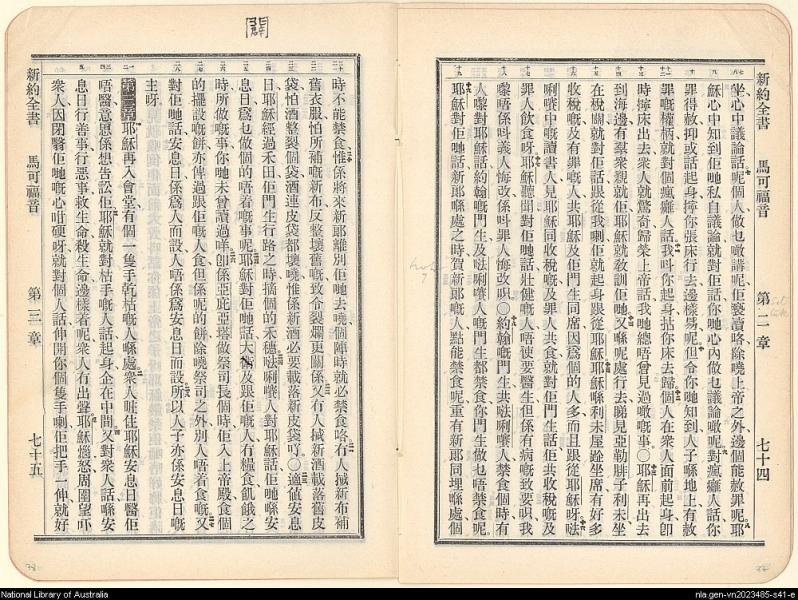 新約全書 馬可福音 第二章 七十四
坐心中議論話呢個人做乜噉講呢佢褻瀆咯除嘵上帝之外邊個能赦罪呢耶
穌心中知到佢哋私自議論就對佢話你哋心內做乜議論噉呢對瘋癱人話你
罪得赦抑或話起身擰你張床行去邊樣易呢但令你哋知到人子喺地上有赦
罪嘅權柄就對個瘋癱人話我叫你起身拈你床去歸個人在衆人面前起身卽
時擰床出去衆人就驚奇歸榮上帝話我哋總唔曾見過噉嘅事〇耶穌再出去
到海邊有羣衆親就佢耶穌就敎訓佢哋又喺呢處行去睇見亞勒腓子利未坐
在稅關就對佢話跟從我喇佢就起身跟從耶穌耶穌喺利未屋跲坐席有好多
收稅嘅及有罪嘅人共耶穌及佢門生同席因爲個的人多而且跟從耶穌呀㗎
唎㘔中嘅讀書人見耶穌同收稅嘅及罪人共食就對佢門生話佢共收稅嘅及
罪人飲食呀耶穌聽聞對佢哋話壯健嘅人唔使要醫生但係有病嘅致要啫我
嚟唔係呌義人悔改係呌罪人悔改啫〇約翰嘅門生共㗎唎㘔人禁食個時有
人嚟對耶穌話約翰嘅門生及㗎唎㘔人嘅門生都禁食你門生做乜唔禁食呢
耶穌對佢哋話新郎喺處之時賀新郎嘅人點能禁食呢重有新郎同埋喺處個
時不能禁食惟係將來新郎離別佢哋去嘵個陣時就必禁食咯冇人搣新布補
舊衣服怕所補嘅新布反整壞舊嘅致令裂爛更關係又冇人搣新酒載落舊皮
袋怕酒整裂個袋酒連皮袋都壞嘵惟係新酒必要載落新皮袋吖〇適値安息
日耶穌經過禾田佢門生行路之時摘個的禾穗㗎唎㘔人對耶穌話佢哋喺安
息日爲乜做個的唔着嘅事呢耶穌對佢哋話大闢及跟佢嘅人冇糧食飢餓之
時所做嘅事你哋未曾讀過咩卽係亞庇亞塔做祭司長個時佢入上帝殿食個
的擺設嘅餅亦俾過跟佢嘅人食但係呢的餅除嘵祭司之外別人唔着食嘅又
對佢哋話安息日係爲人而設人唔係爲安息日而設所以人子亦係安息日嘅
主呀
第三章 耶穌再入會堂有個一隻手乾枯嘅人喺處衆人吽住耶穌安息日醫佢
唔醫意思係想告訟佢耶穌就對枯手嘅人話起身企在中間又對衆人話喺安
息日行善事行惡事救生命殺生命邊樣着呢衆人冇出聲耶穌惱怒周圍望吓
衆人因閉翳佢哋嘅心咁硬呀就對個人話伸開你個隻手喇佢把手一伸就好
新約全書 馬可福音 第三章 七十五
闢
National Library of Australia
nla.gen-vn2023485-s41-e